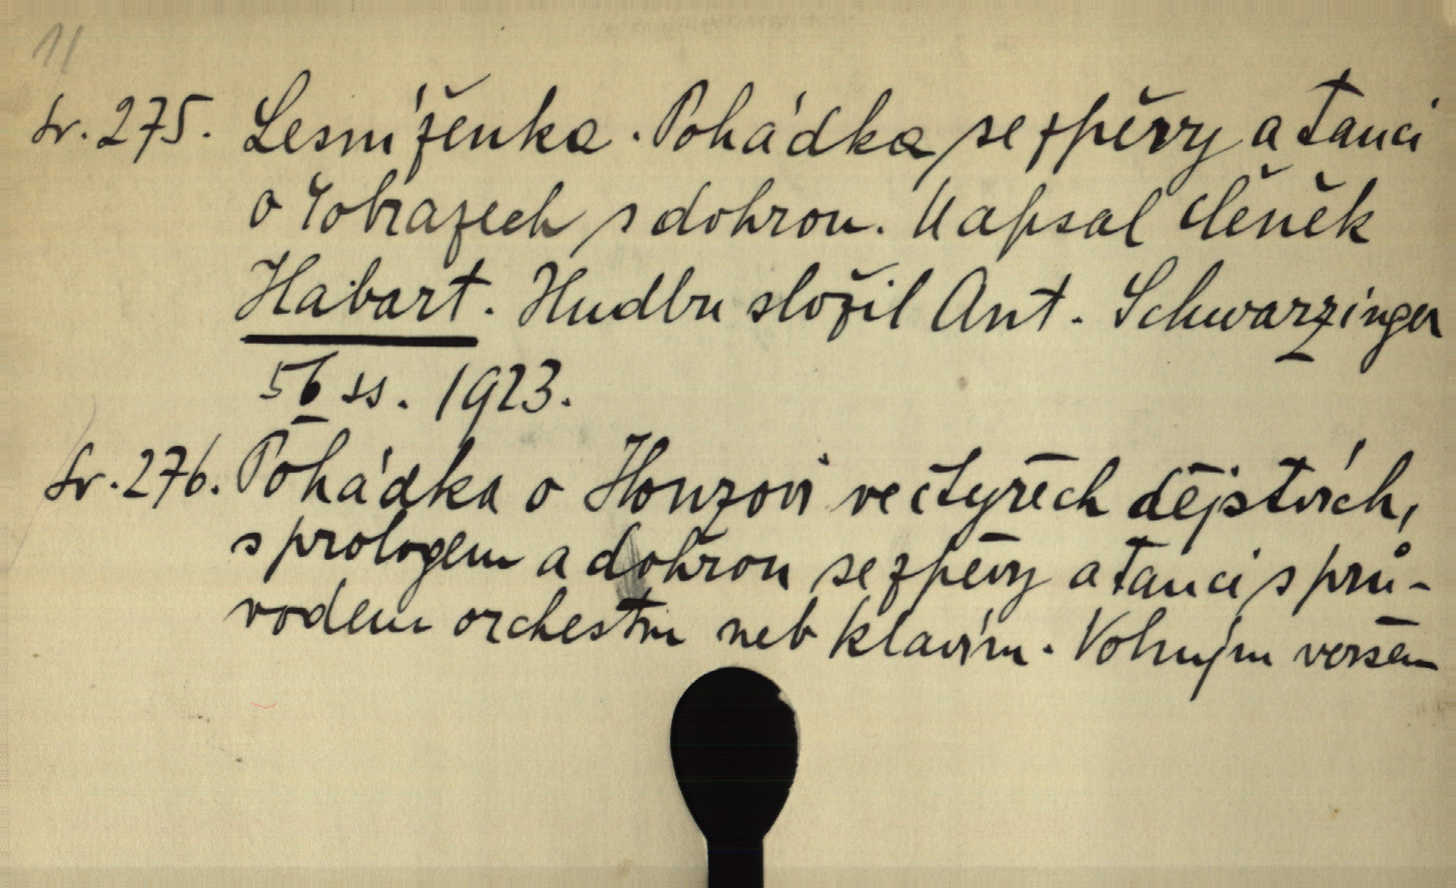 11
Sv. 275. Lesní ženka. Pohádka se zpěvy a tanci
o 4 obrazech s dohrou. Napsal Čeněk
Habart. Hudbu složil Ant. Schwarzinger
56 ss. 1923.
Sv. 276. Pohádka o Honzovi ve čtyřech dějstvích,
s prologem a dohrou se zpěvy a tanci s prů-
vodem orchestru neb klavíru. Volným veršem